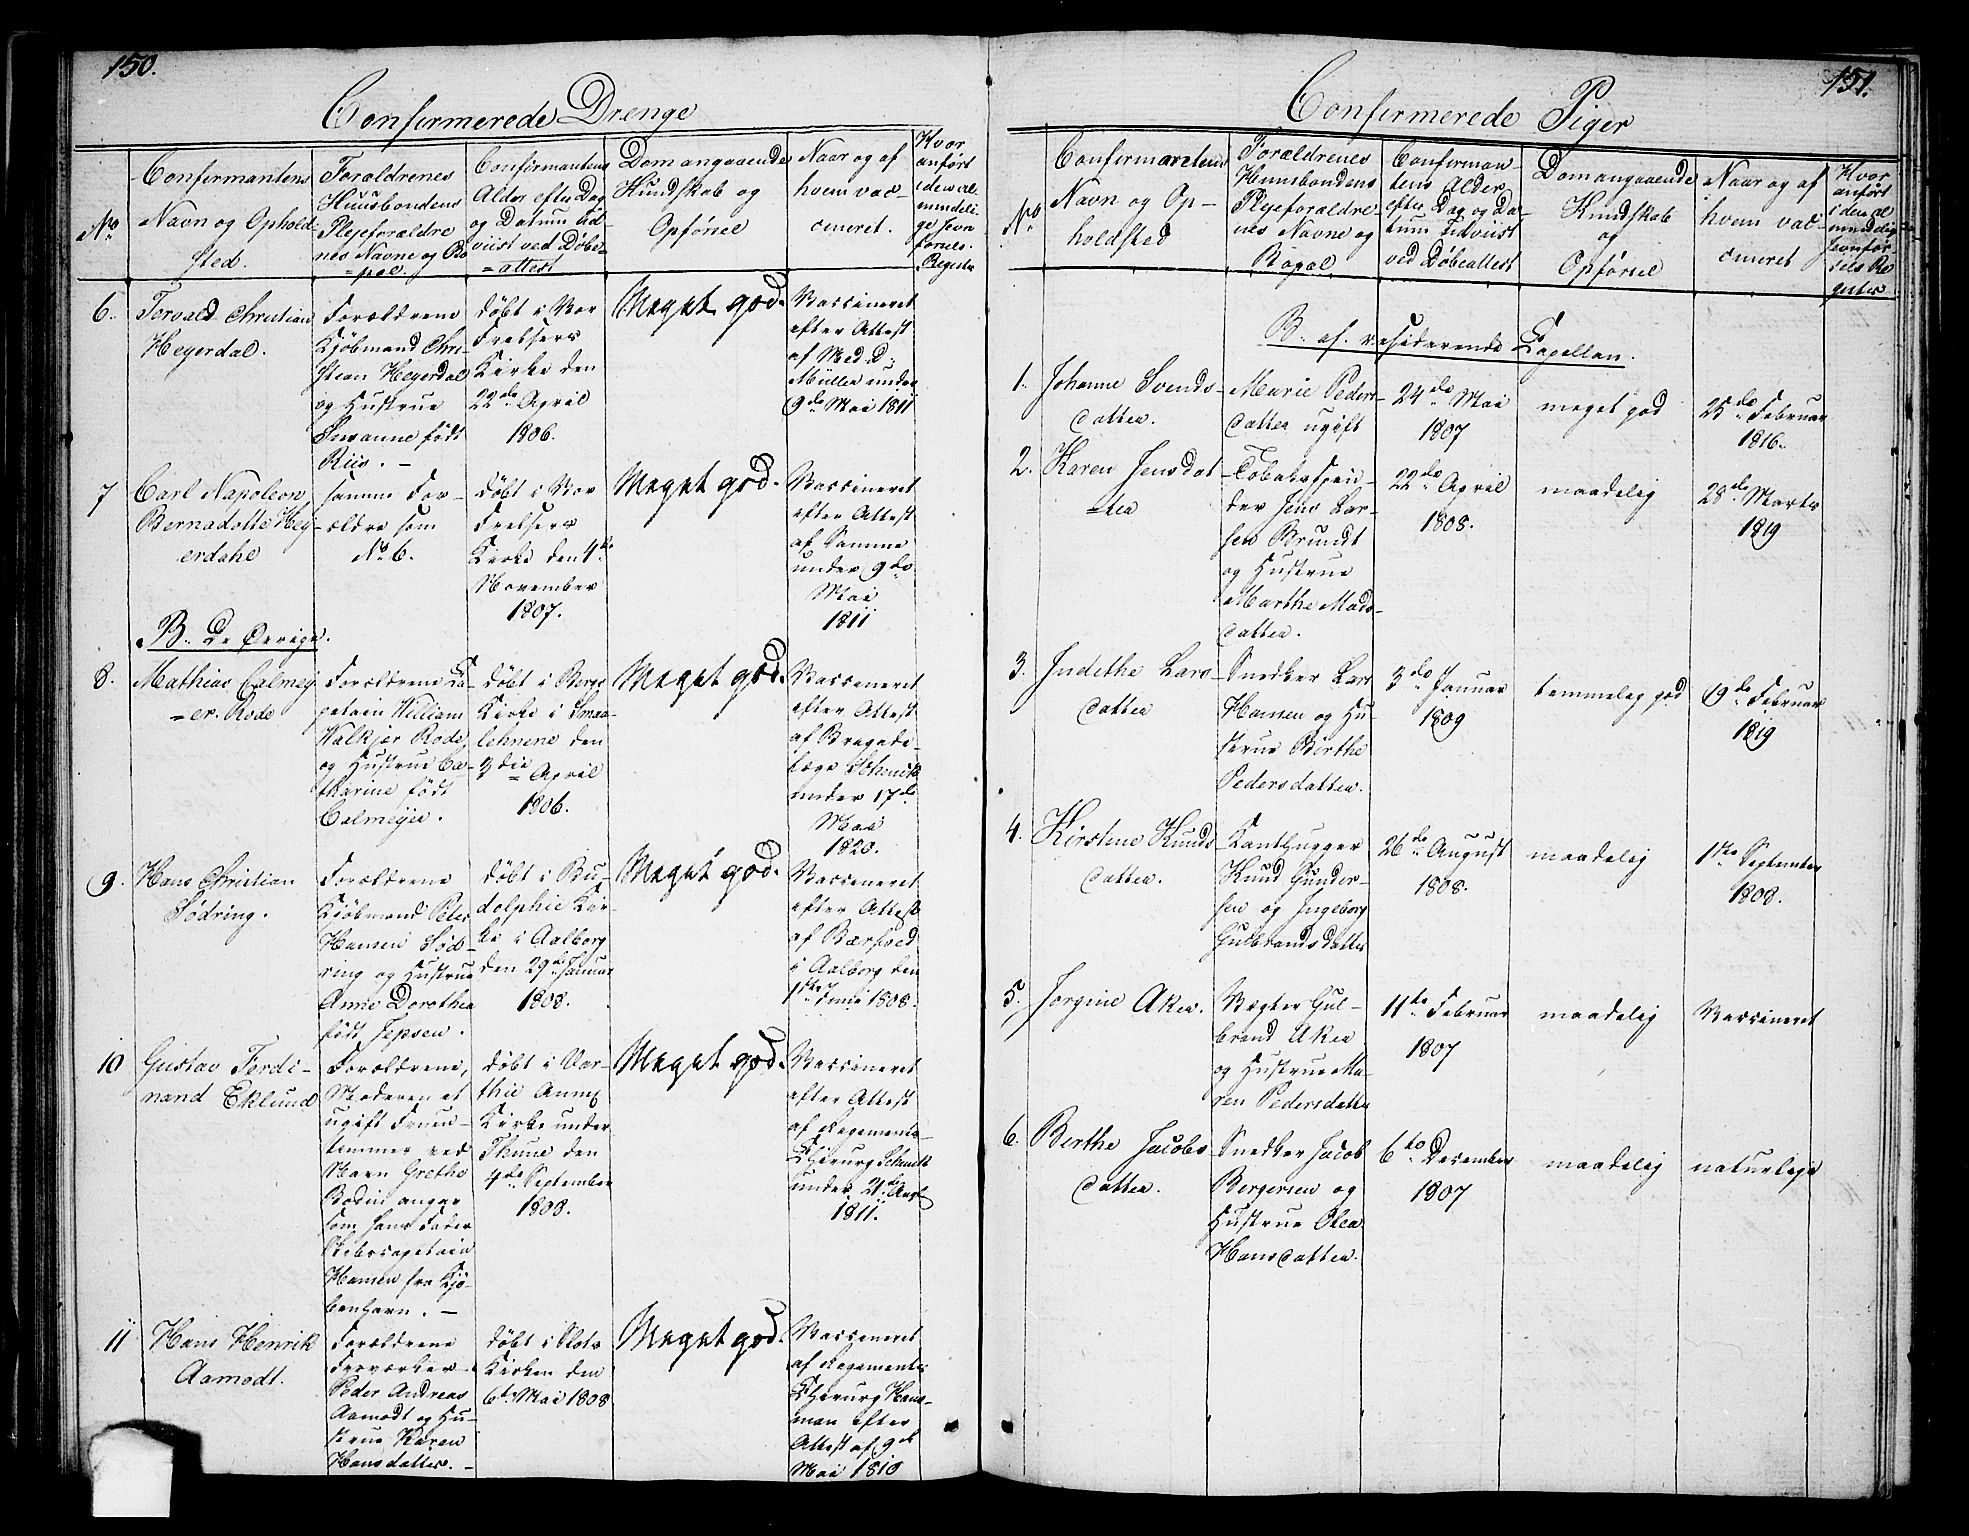 150.
Confirmerede Drenge
No
Confirmantens
Navn og Ophold-
sted.
Forældrenes
Huusbondens
Plejeforældre
nes Navne og Bo
=pæl.
Confirmantens
Alder efter Dag
og Datum Ud-
viist ved Døbe-
=attest
Dom angaaende
Kundskab og
Opførsel
Naar og af
hvem vac-
cineret.
Hvor
anført
i den al
mindeli-
ge Jevn
førels.
Register
6.
Torvald Christian
Heyerdal.
Forældrene
Kjøbmand Chri-
stian Heyerdal
og Hustrue
Susanne født
Riis. -
døbt i Vor
Frelsers
Kirke den
22de April
1806.
Meget god.
Vaccineret
efter Attest
af Med. D.
Müller under
9de Mai 1811
7
Carl Napoleon
Bernadotte Hey-
erdahl
samme For-
ældre som
No 6.
døbt i Vor
Frelsers
Kirke den 4de
November
1807.
Meget god.
Vaccineret
efter Attest
af Samme
under 9de
Mai
1811
B. De Øvrige.
8.
Mathias Calmey
=er. Rode
Forældrene Ca-
pitain William
Walkjer Rode,
og Hustrue Ca-
tharine født
Calmeyer.
døbt i Bergs
Kirke i Smaa-
lehnene den
3die April
1806.
Meget god.
Vaccineret
efter Attest
af Brigade-
læge Schenck
under 17de
Mai
1820.
9.
Hans Christian
Södring.
Forældrene
Kjöbmand Peter
Hansen Söd-
ring og Hustrue
Anne Dorothea
født Jepsen.
døbt i Bu-
dolphie Kir-
ke i Aalborg
den 29de Januar
1808.
Meget god.
Vaccineret
efter Attest
af Bærfoed
i Aalborg den
1ste Juni 1808.
10
Gustav Ferdi-
nand Eklund
Forældrene,
Moderen et
ugift Fruen-
timmer ved
Navn Grethe
Bodin angav
som hans Fader
Stabscapitain
Hansen fra Kjö-
benhavn. -
døbt i
Anne
Kirke under
Thune den
4de September
1808.
Meget god.
Vaccineret
efter Attest
af Regiments-
Chirurg Schenck
under 21de Augt
1811.
11
Hans Henrik
Aamodt.
Forældrene
Peder Andreas
Aamodt og Hu-
strue Karen
Hansdatter. -
døbt i Slots
Kirken den
6te Mai 1808
Meget god.
Vaccineret
af Regiments
Chirurg Hans-
man efter
Attest af 9de
Mai 1810
151.
Confirmerede Piger
No
Confirmantens
Navn og Op-
holdsted
Forældrenes
Huusbondens
Plejeforældre-
nes Navne og
Bopæl
Confirman-
tens Alder
efter Dag og Da-
tum Udviist
ved Døbeattest
Dom angaaende
Kundskab
og
Opførsel
Naar og af
hvem vac-
cineret
Hvor
anført
i den al
mindelig
Jevnfør
sels Re
gister
B. af residerende Capellan.
1.
Johanne Svends-
datter.
Marie Peders-
datter ugift
24de Mai
1807
meget god
25de Februar
1816.
2.
Karen Jensdat-
=ter
Tobakspin-
der Jens Lar-
sen Brundt
og Hustrue
Marthe Mads-
datter.
22de April
1808.
maadelig
28de Marts
1819
3.
Indethe Lars-
datter
Snedker Lars
Hansen og Hu-
strue Birthe
Pedersdatter.
3de Januar
1809
temmelig god
19de Februar
1819
4.
Kirstine Knuds
datter.
Knud Gunder-
sen og Ingeborg
Gulbrandsdatter
26de August
1808.
maadelig
1ste September
1808.
5.
Jorgine Aker.
Vægter Gul-
brand Aker
og Hustrue Ma-
ren Pedersdatter
11te Februar
1807
maadelig
Vaccineret
6.
Berthe Jacobs
datter.
Snedker Jacob
Bergersen og
Hustrue Olea
Hansdatter.
6te December
1807
maadelig
naturlige